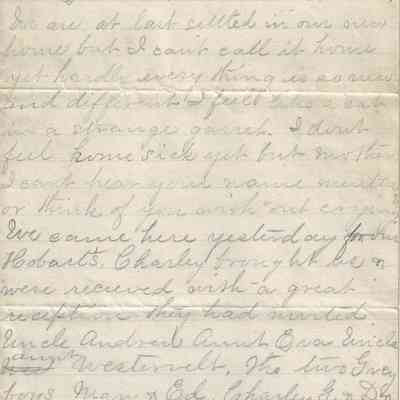 We are at last settled in our new
home but I can't call it home
yet hardly every thing is so new
and different I feel like a cat
in a strange garret. I don't
feel home sick yet but mother
I can't hear your name mention
or think of you with out crying
We came here yesterday from
Hobarts. Charley brought us &
were recieved with a great
reception they had invited
Uncle Andrew Aunt Eva Uncle
aunt Westervelt, The two Grey
boys Mary & Ed, Charley G. &